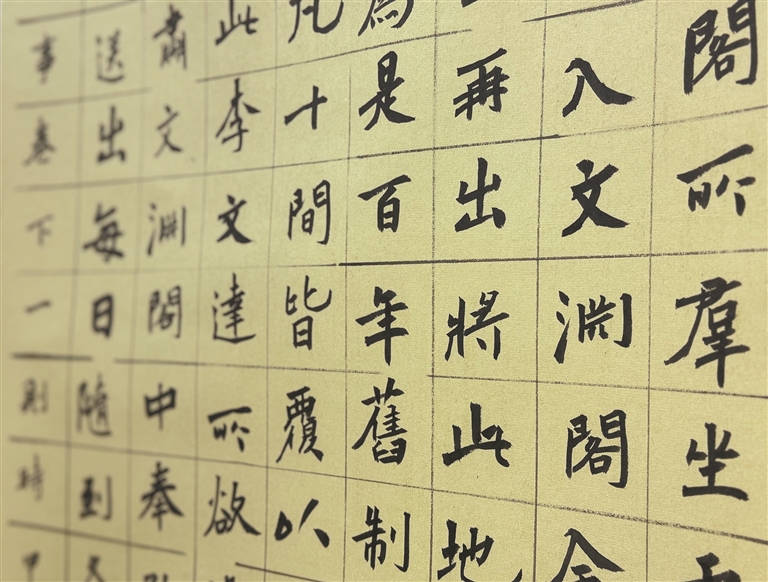 閣所羣坐
入文淵閣
再出將此地
為是百年舊制
凡十間皆覆以
此李文達所欲
肅文淵閣中奉
送出每日隨到
事卷下一則時